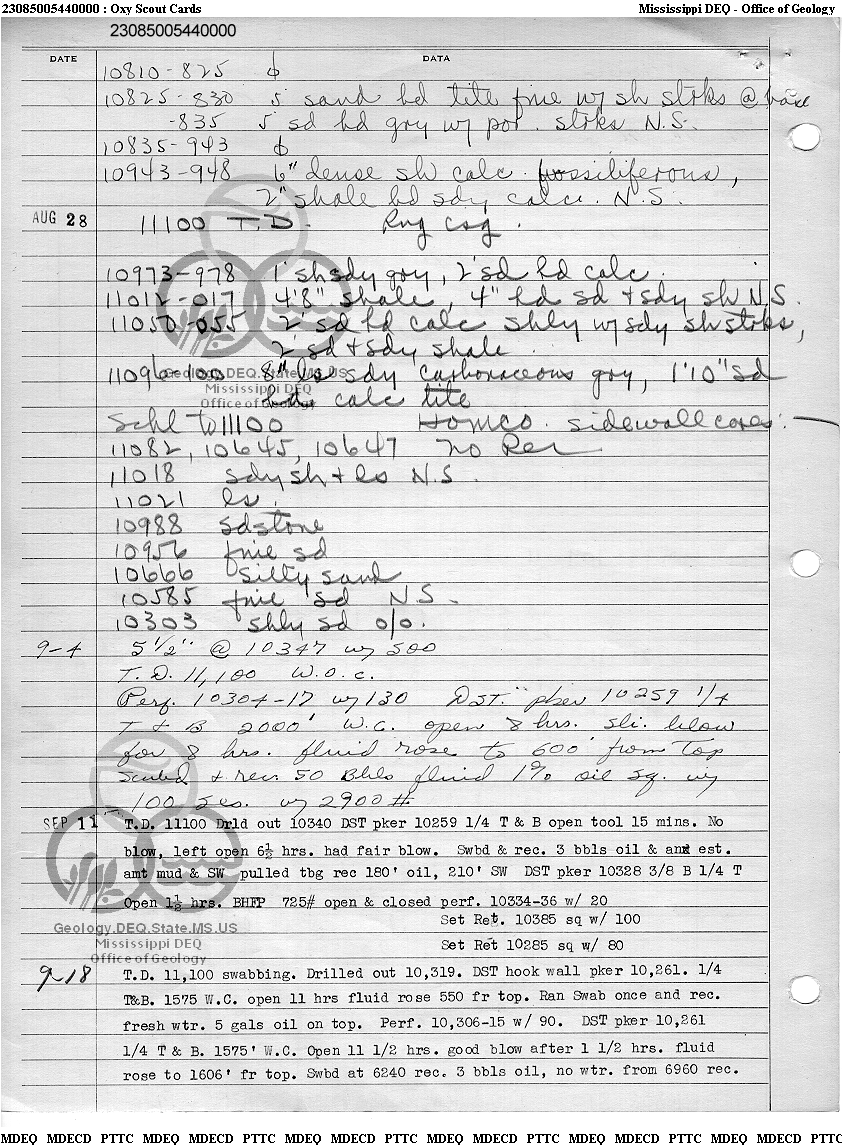 23085005440000 : Oxy Scout Cards Mississippi DEQ - Office of Geology
23085005440000
DATE DATA
10810-825 ϕ
10825-830 5' sand hd tite fine w/ sh strks @ base
-835 5' sd hd gry w/ por. strks N.S.
10835-943 ϕ
10943-948 6" dense sh calc fossiliferous,
2" shale hd sdy calc. N.S.
AUG 28 11100 T.D. Rng csg.
10973-978 1' sh sdy gry, 2' sd hd calc.
11012-017 4'8" shale, 4" hd sd + sdy sh N.S.
11050-055 2' sd hd calc shly w/ sdy sh strks,
2' sd + sdy shale.
11096-100 8" ls sdy carbonaceous gry, 1'10" sd
hd calc tite
Schl to 11100 Homco sidewall cores:
11082, 10645, 10647 no Rec
11018 sdy sh + ls N.S.
11021 ls.
10988 sdstone
10956 fine sd
10666 silty sand
10585 fine sd N.S.
10303 shly sd o/o.
9-4 5 1/2" @ 10347 w/ 500
T.D. 11,100 W.O.C.
Perf. 10304-17 w/130 DST. pker 10259 1/4
T & B 2000' W.C. open 8 hrs. sli. blow
for 8 hrs. fluid rose to 600' from Top
Swbd + rec. 50 Bbls fluid 1% oil sq. w/
100 sxs. w/ 2900#
SEP 11 T.D. 11100 Drld out 10340 DST pker 10259 1/4 T & B open tool 15 mins. No
blow, left open 6½ hrs. had fair blow. Swbd & rec. 3 bbls oil & and est.
amt mud & SW pulled tbg rec 180' oil, 210' SW DST pker 10328 3/8 B 1/4 T
Open 1½ hrs. BHFP 725# open & closed perf. 10334-36 w/ 20
Set Ret. 10385 sq w/ 100
Set Ret 10285 sq w/ 80
9-18 T.D. 11,100 swabbing. Drilled out 10,319. DST hook wall pker 10,261. 1/4
T&B. 1575 W.C. open 11 hrs fluid rose 550 fr top. Ran Swab once and rec.
fresh wtr. 5 gals oil on top. Perf. 10,306-15 w/ 90. DST pker 10,261
1/4 T & B. 1575' W.C. Open 11 1/2 hrs. good blow after 1 1/2 hrs. fluid
rose to 1606' fr top. Swbd at 6240 rec. 3 bbls oil, no wtr. from 6960 rec.
Geology.DEQ.State.MS.US
Mississippi DEQ
Office of Geology
Geology.DEQ.State.MS.US
Mississippi DEQ
Office of Geology
MDEQ MDECD PTTC MDEQ MDECD PTTC MDEQ MDECD PTTC MDEQ MDECD PTTC MDEQ MDECD PTTC MDEQ MDECD PTTC